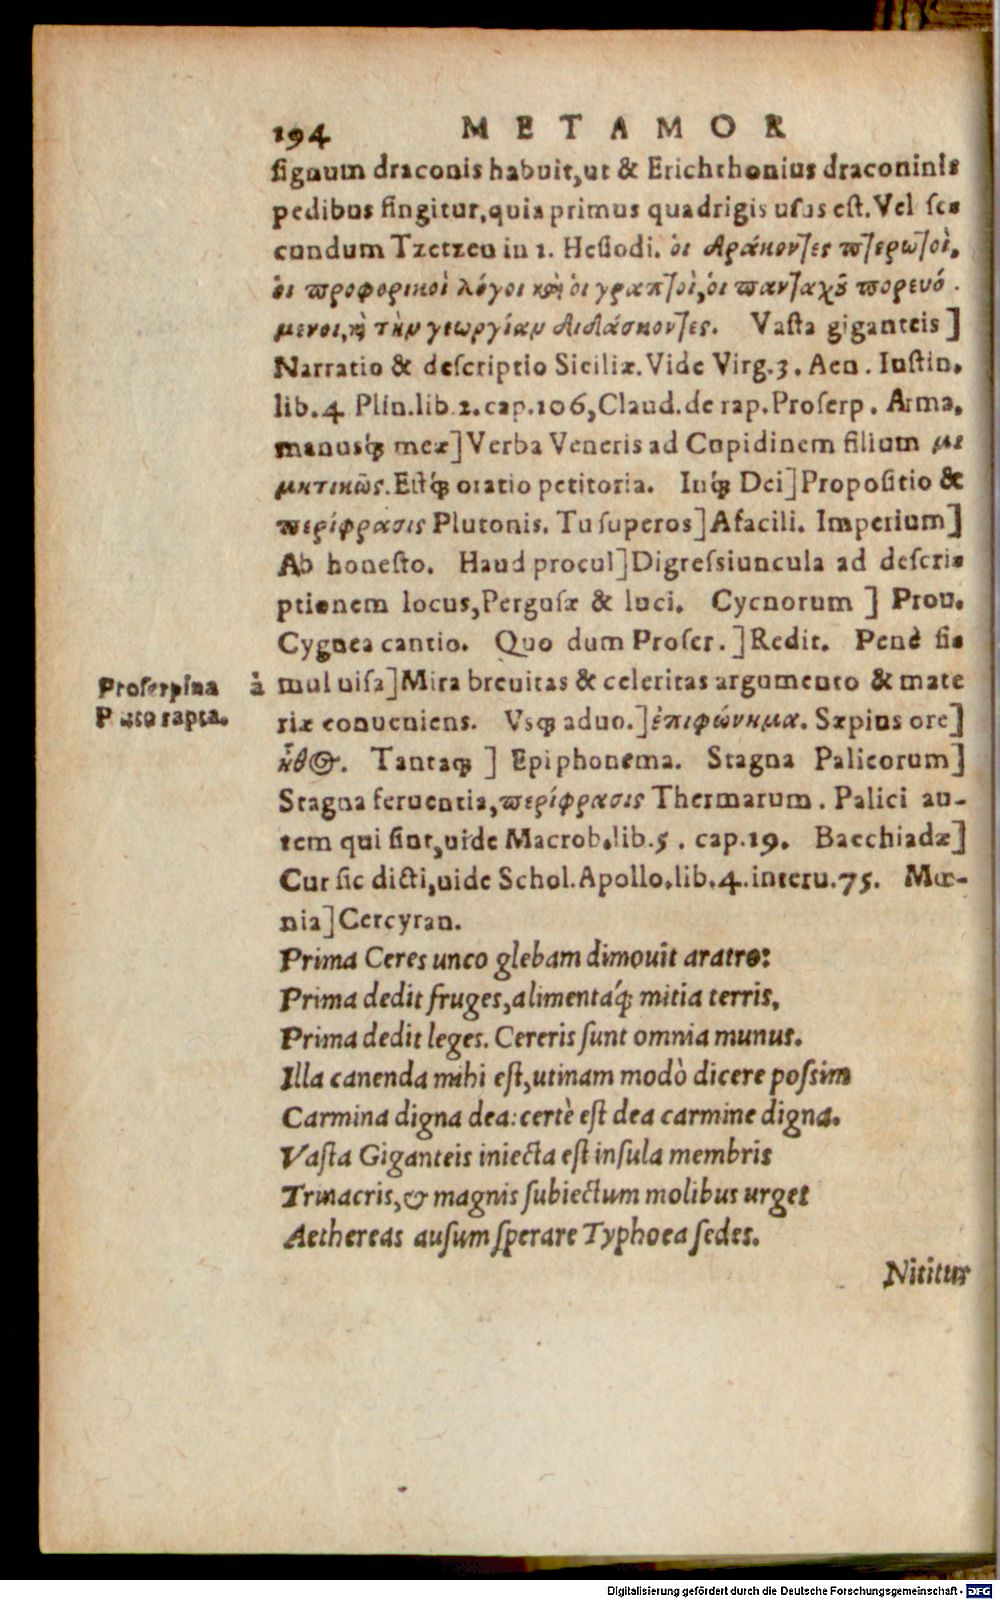 194 METAMOR
signum draconis habuit,ut & Erichthonius draconinis
pedibus fingitur,quia primus quadrigis usus est.Vel se-
cundum Tzetzen in 1. Hesiodi. οἱ δράκοντες πτερωτοὶ,
οἱ προφορικοὶ λόγοι καὶ οἱ γραπτοὶ,οἱ πανταχοῦ πορευό-
μενοι,καὶ τὴν γεωργίαν διδάσκοντες. Vasta giganteis]
Narratio & descriptio Siciliæ.Vide Virg.3. Aen. Iustin.
lib.4 Plin.lib 2.cap.106,Claud.de rap.Proserp. Arma,
manusq; meæ]Verba Veneris ad Cupidinem filium με
μητικῶς.Estq; oratio petitoria. Inq; Dei]Propositio &
περίφρασις Plutonis. Tu superos]A facili. Imperium]
Ab honesto. Haud procul]Digressiuncula ad descri-
ptionem locus,Pergusæ & luci. Cycnorum ] Prou.
Cygnea cantio. Quo dum Proser.]Redit. Penè si-
mul uisa]Mira breuitas & celeritas argumento & mate
riæ conueniens. Vsq; aduo.]ἐπιφώνημα. Sæpius ore]
ἦθος. Tantaq; ] Epiphonema. Stagna Palicorum]
Stagna feruentia,περίφρασις Thermarum. Palici au-
tem qui sint,uide Macrob.lib.5. cap.19. Bacchiadæ]
Cur sic dicti,uide Schol.Apollo.lib.4.interu.75. Mœ-
nia]Cercyran.
Proserpina à
Pluto rapta.
Prima Ceres unco glebam dimouit aratro:
Prima dedit fruges,alimentáq; mitia terris,
Prima dedit leges. Cereris sunt omnia munus.
Illa canenda mihi est,utinam modò dicere possim
Carmina digna dea: certè est dea carmine digna.
Vasta Giganteis iniecta est insula membris
Trinacris,& magnis subiectum molibus urget
Aethereas ausum sperare Typhoea sedes.
Nititur
Digitalisierung gefördert durch die Deutsche Forschungsgemeinschaft - DFG